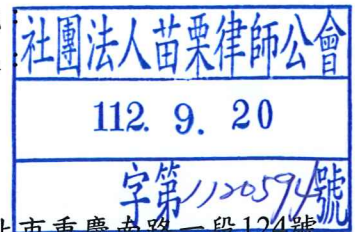 社團法人苗栗律師公會
112. 9. 20
字第1120594號
北市重慶南路一段124號